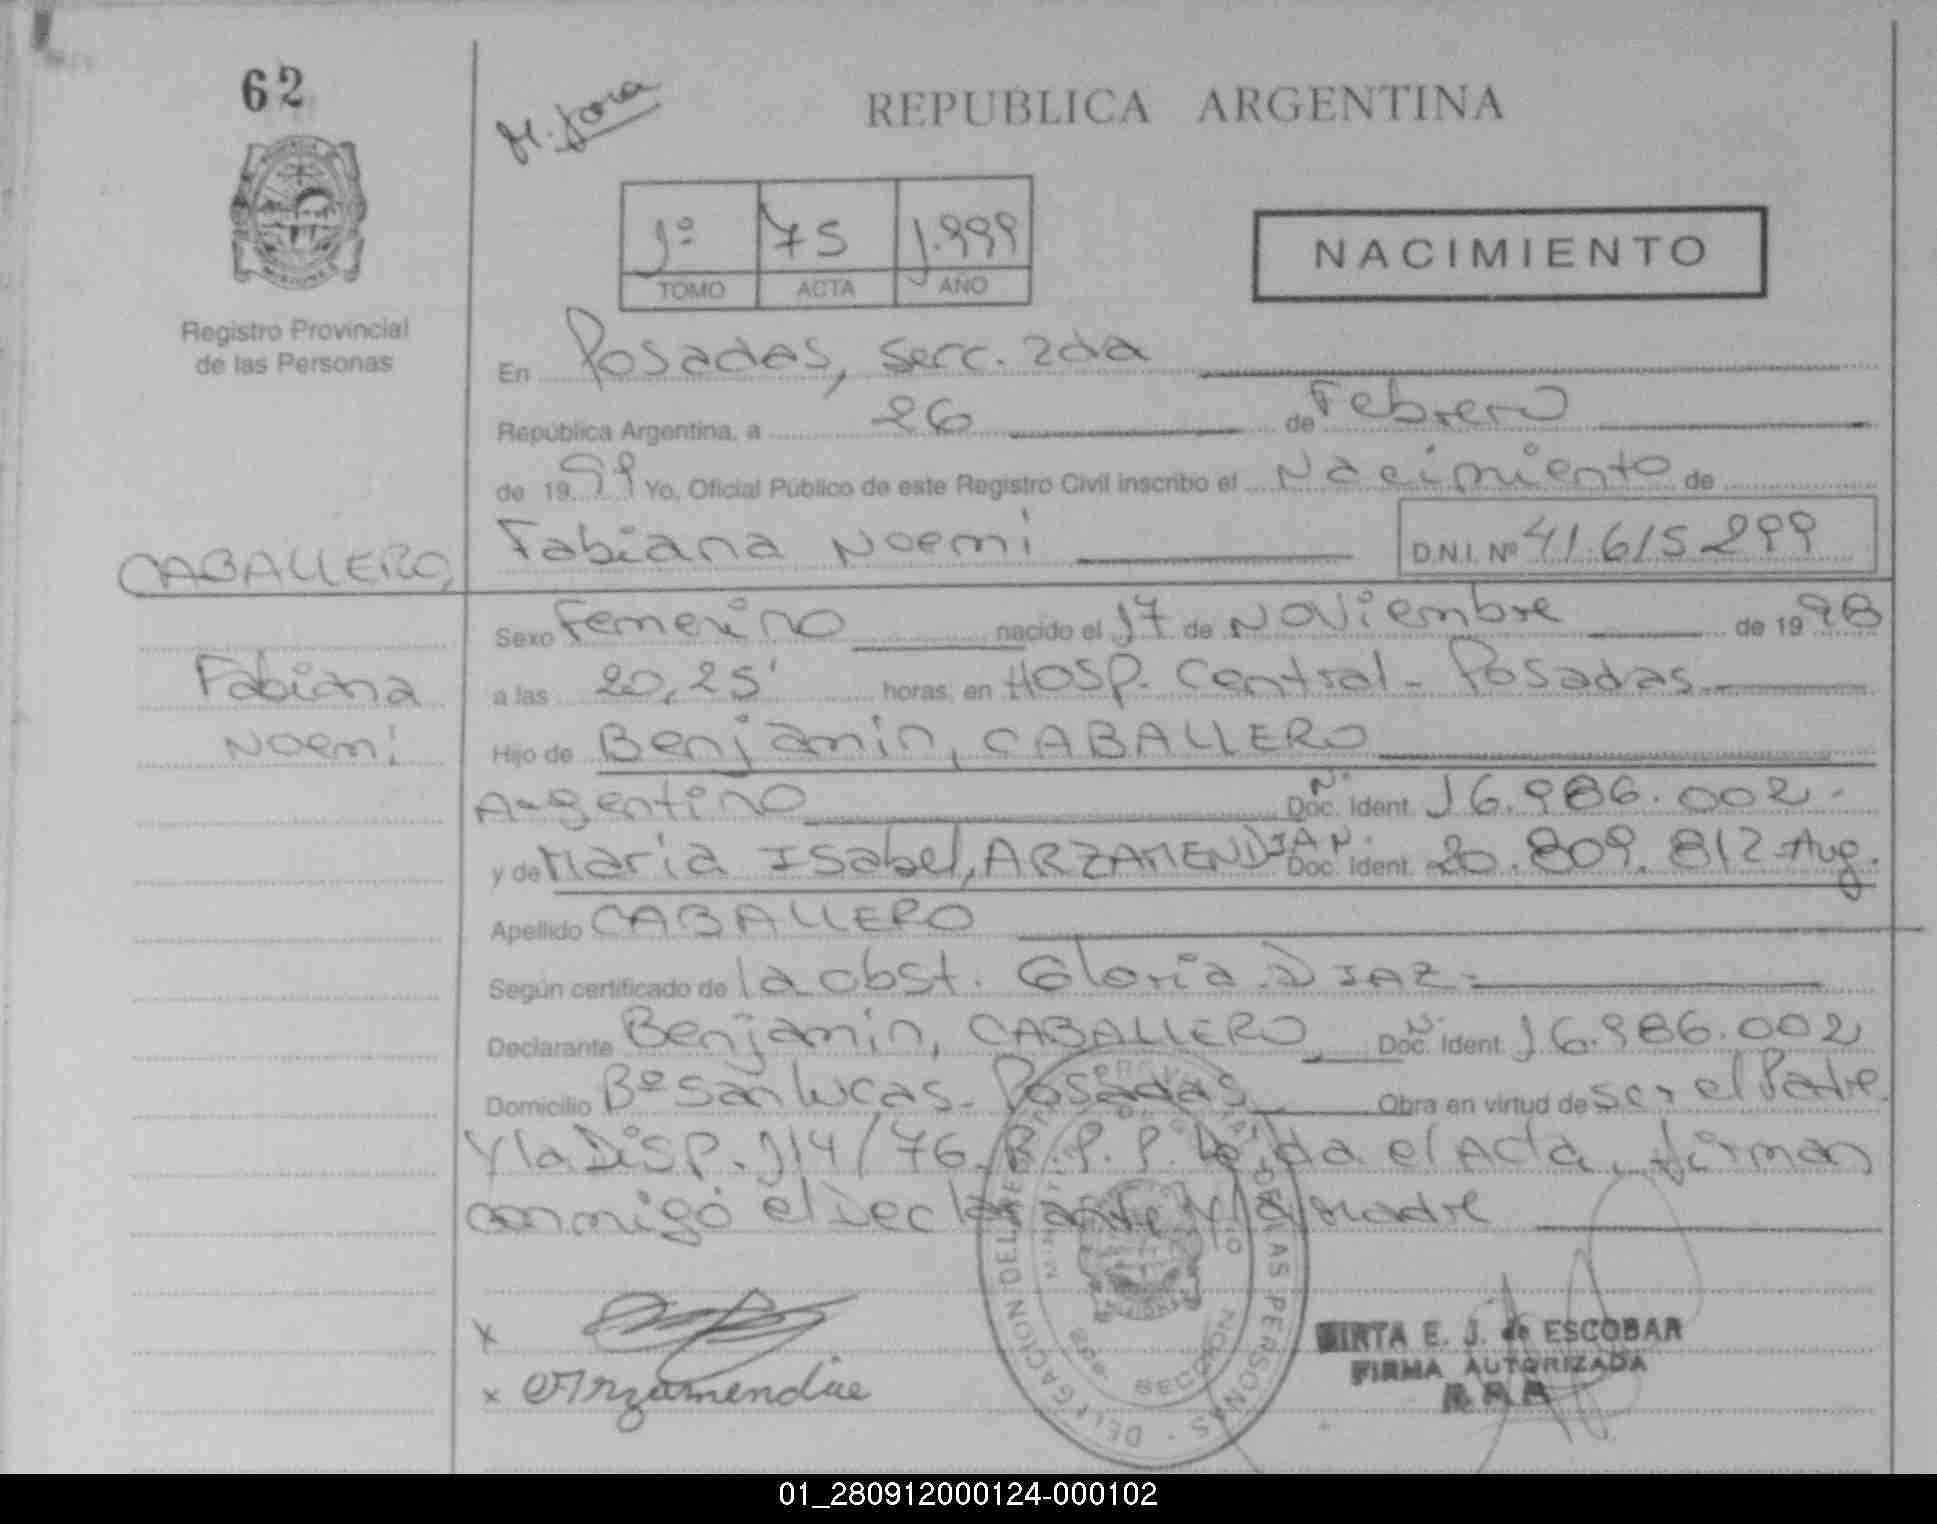 62
REPUBLICA ARGENTINA
1º 75 1.999
TOMO ACTA AÑO
NACIMIENTO
Registro Provincial
de las Personas
En Posadas, Secc. 2da
República Argentina, a 26 de Febrero
de 1999 Yo, Oficial Público de este Registro Civil inscribo el Nacimiento de
CABALLERO, Fabiana Noemi D.N.I. Nº 41.615299
Sexo Femenino nacido el 17 de Noviembre de 1998
Fabiana a las 20,25' horas, en Hosp. Central - Posadas
Noemi Hijo de Benjamin, CABALLERO
Argentino Nº Doc. Ident. 16.986.002.
y de Maria Isabel, ARZAMENDIA Nº Doc. Ident. 20.809.812 Arg.
Apellido CABALLERO
Según certificado de la obst. Gloria DIAZ.
Declarante Benjamin, CABALLERO Nº Doc. Ident. 16.986.002
Domicilio Bº San Lucas - Posadas Obra en virtud de ser el Padre
y la Disp. 114/76 R.P.P. Leida el Acta, firman
conmigo el declarante y la Madre
x
x Arzamendia
MIRTA E. J. de ESCOBAR
FIRMA AUTORIZADA
DELEGACION DEL DE LAS PERSONAS
SECCION
01_280912000124-000102